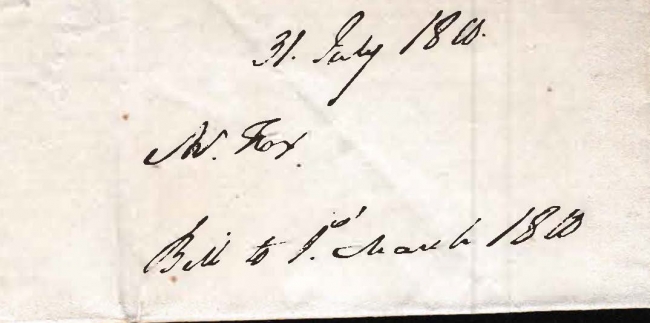 31. July 1800.
Mr. Fox.
Bill to 1st. March 1800